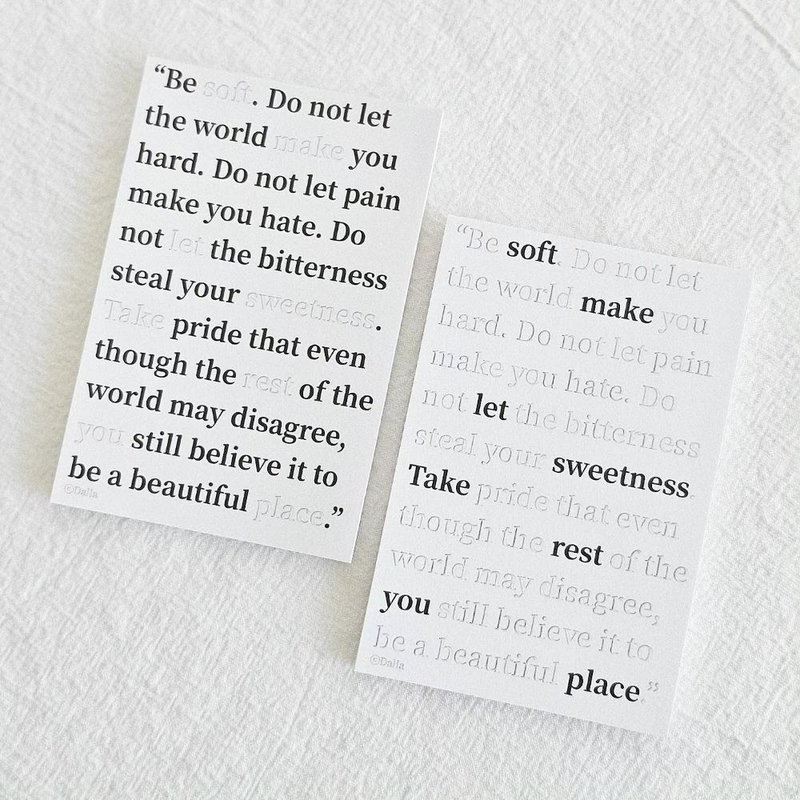 “Be soft. Do not let
the world make you
hard. Do not let pain
make you hate. Do
not let the bitterness
steal your sweetness.
Take pride that even
though the rest of the
world may disagree,
you still believe it to
be a beautiful place.”
©Dalla
“Be soft. Do not let
the world make you
hard. Do not let pain
make you hate. Do
not let the bitterness
steal your sweetness.
Take pride that even
though the rest of the
world may disagree,
you still believe it to
be a beautiful place.”
©Dalla